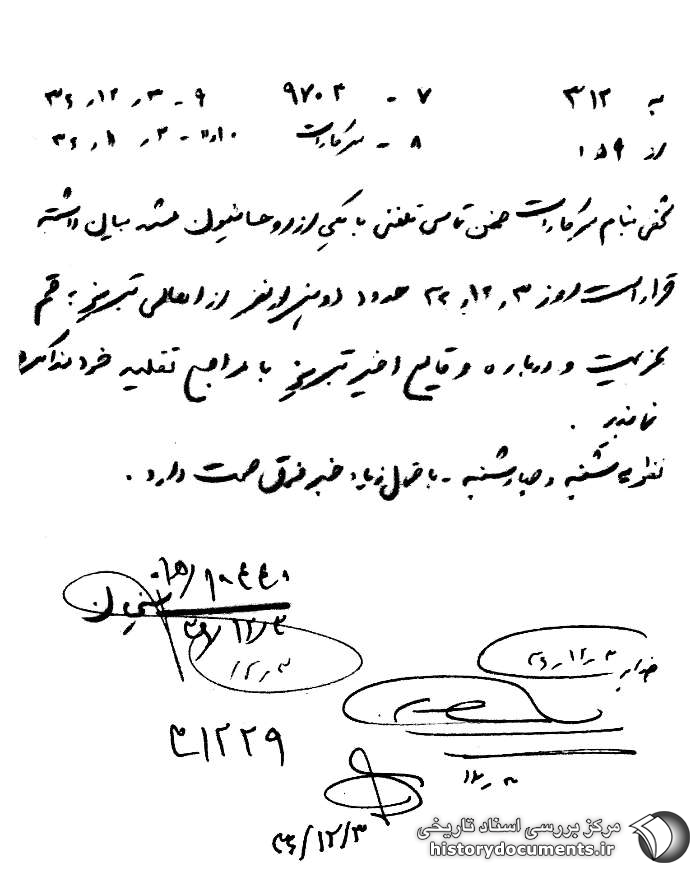 به ۳۱۲ ۷ - ۹۷۰۴ ۹ - ۳ر۱۲ر۳۶
از ۱۵۹ ۸ - سرکارات
شخصی بنام سرکارات ضمن تماس تلفنی با یکی از روحانیون مشهد بیان داشته
قرار است روز ۳ر۱۲ر۳۶ حدود دو هزار نفر از اهالی تبریز به قم
عزیمت و درباره وقایع اخیر تبریز با مراجع تقلید خود مذاکره
نمایند .
نظریه شنبه و چهارشنبه - باحتمال زیاد خبر فوق صحت دارد .
۳۶/۱۲/۳
۱۲ر۳
۳ر۱۲ر۳۶
۳۶/۱۲/۳
مرکز بررسی اسناد تاریخی
historydocuments.ir